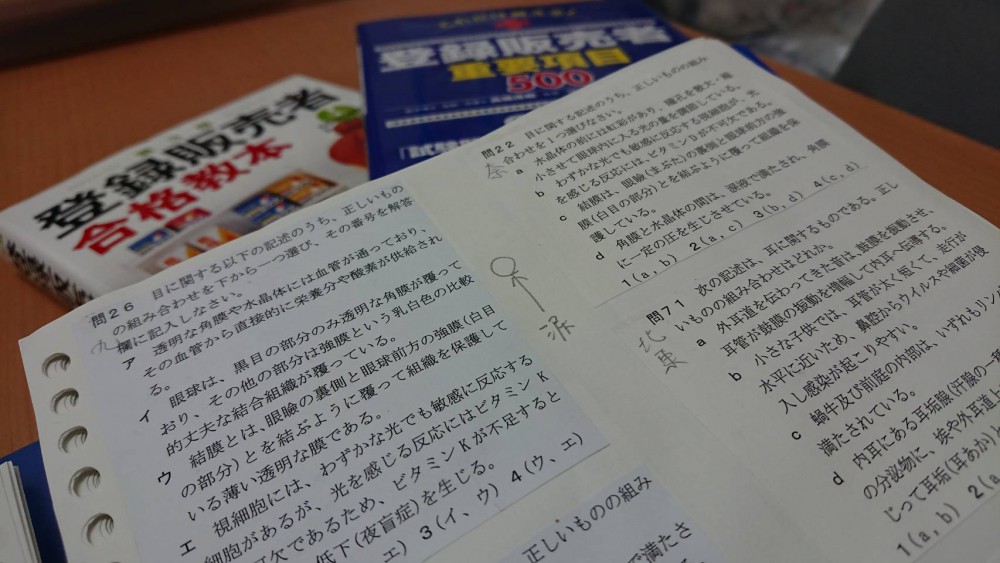 登録販売者
合格教本
登録販売者
重要項目
500
九
問26　目に関する以下の記述のうち、正しいもの
の組み合わせを下から一つ選び、その番号を解答
欄に記入しなさい。
ア　透明な角膜や水晶体には血管が通っており、
その血管から直接的に栄養分や酸素が供給され
る。
イ　眼球は、黒目の部分のみ透明な角膜が覆って
おり、その他の部分は強膜という乳白色の比較
的丈夫な結合組織が覆っている。
ウ　結膜とは、眼瞼の裏側と眼球前方の強膜(白目
の部分)とを結ぶように覆って組織を保護して
いる薄い透明な膜である。
エ　視細胞には、わずかな光でも敏感に反応する
細胞があるが、光を感じる反応にはビタミンK
不可欠であるため、ビタミンKが不足すると
低下(夜盲症)を生じる。
エ) 3(イ、ウ) 4(ウ、エ)
正しいものの組み
で満たさ
涙
奈
問22　目に関する記述のうち、正しいものの組み
合わせを1つ選びなさい。
a　水晶体の前には虹彩があり、瞳孔を散大・縮
小させて眼球内に入る光の量を調節している。
b　わずかな光でも敏感に反応する視細胞が、光
を感じる反応には、ビタミンDが不可欠である。
c　結膜は、眼瞼(まぶた)の裏側と眼球前方の強
膜(白目の部分)とを結ぶように覆って組織を保
護している。
d　角膜と水晶体の間は、涙液で満たされ、角膜
に一定の圧を生じさせている。
1(a,b) 2(a,c) 3(b,d) 4(c,d)
北東
問71　次の記述は、耳に関するものである。正し
いものの組み合わせはどれか。
a　外耳道を伝わってきた音は、鼓膜を振動させ、
耳管が鼓膜の振動を増幅して内耳へ伝導する。
b　小さな子供では、耳管が太く短くて、走行が
水平に近いため、鼻腔からウイルスや細菌が侵
入し感染が起こりやすい。
c　蝸牛及び前庭の内部は、いずれもリン
満たされている。
d　内耳にある耳垢腺(汗腺の一種
の分泌物に、埃や外耳道上
じって耳垢(耳あか)と
1(a,b) 2(a